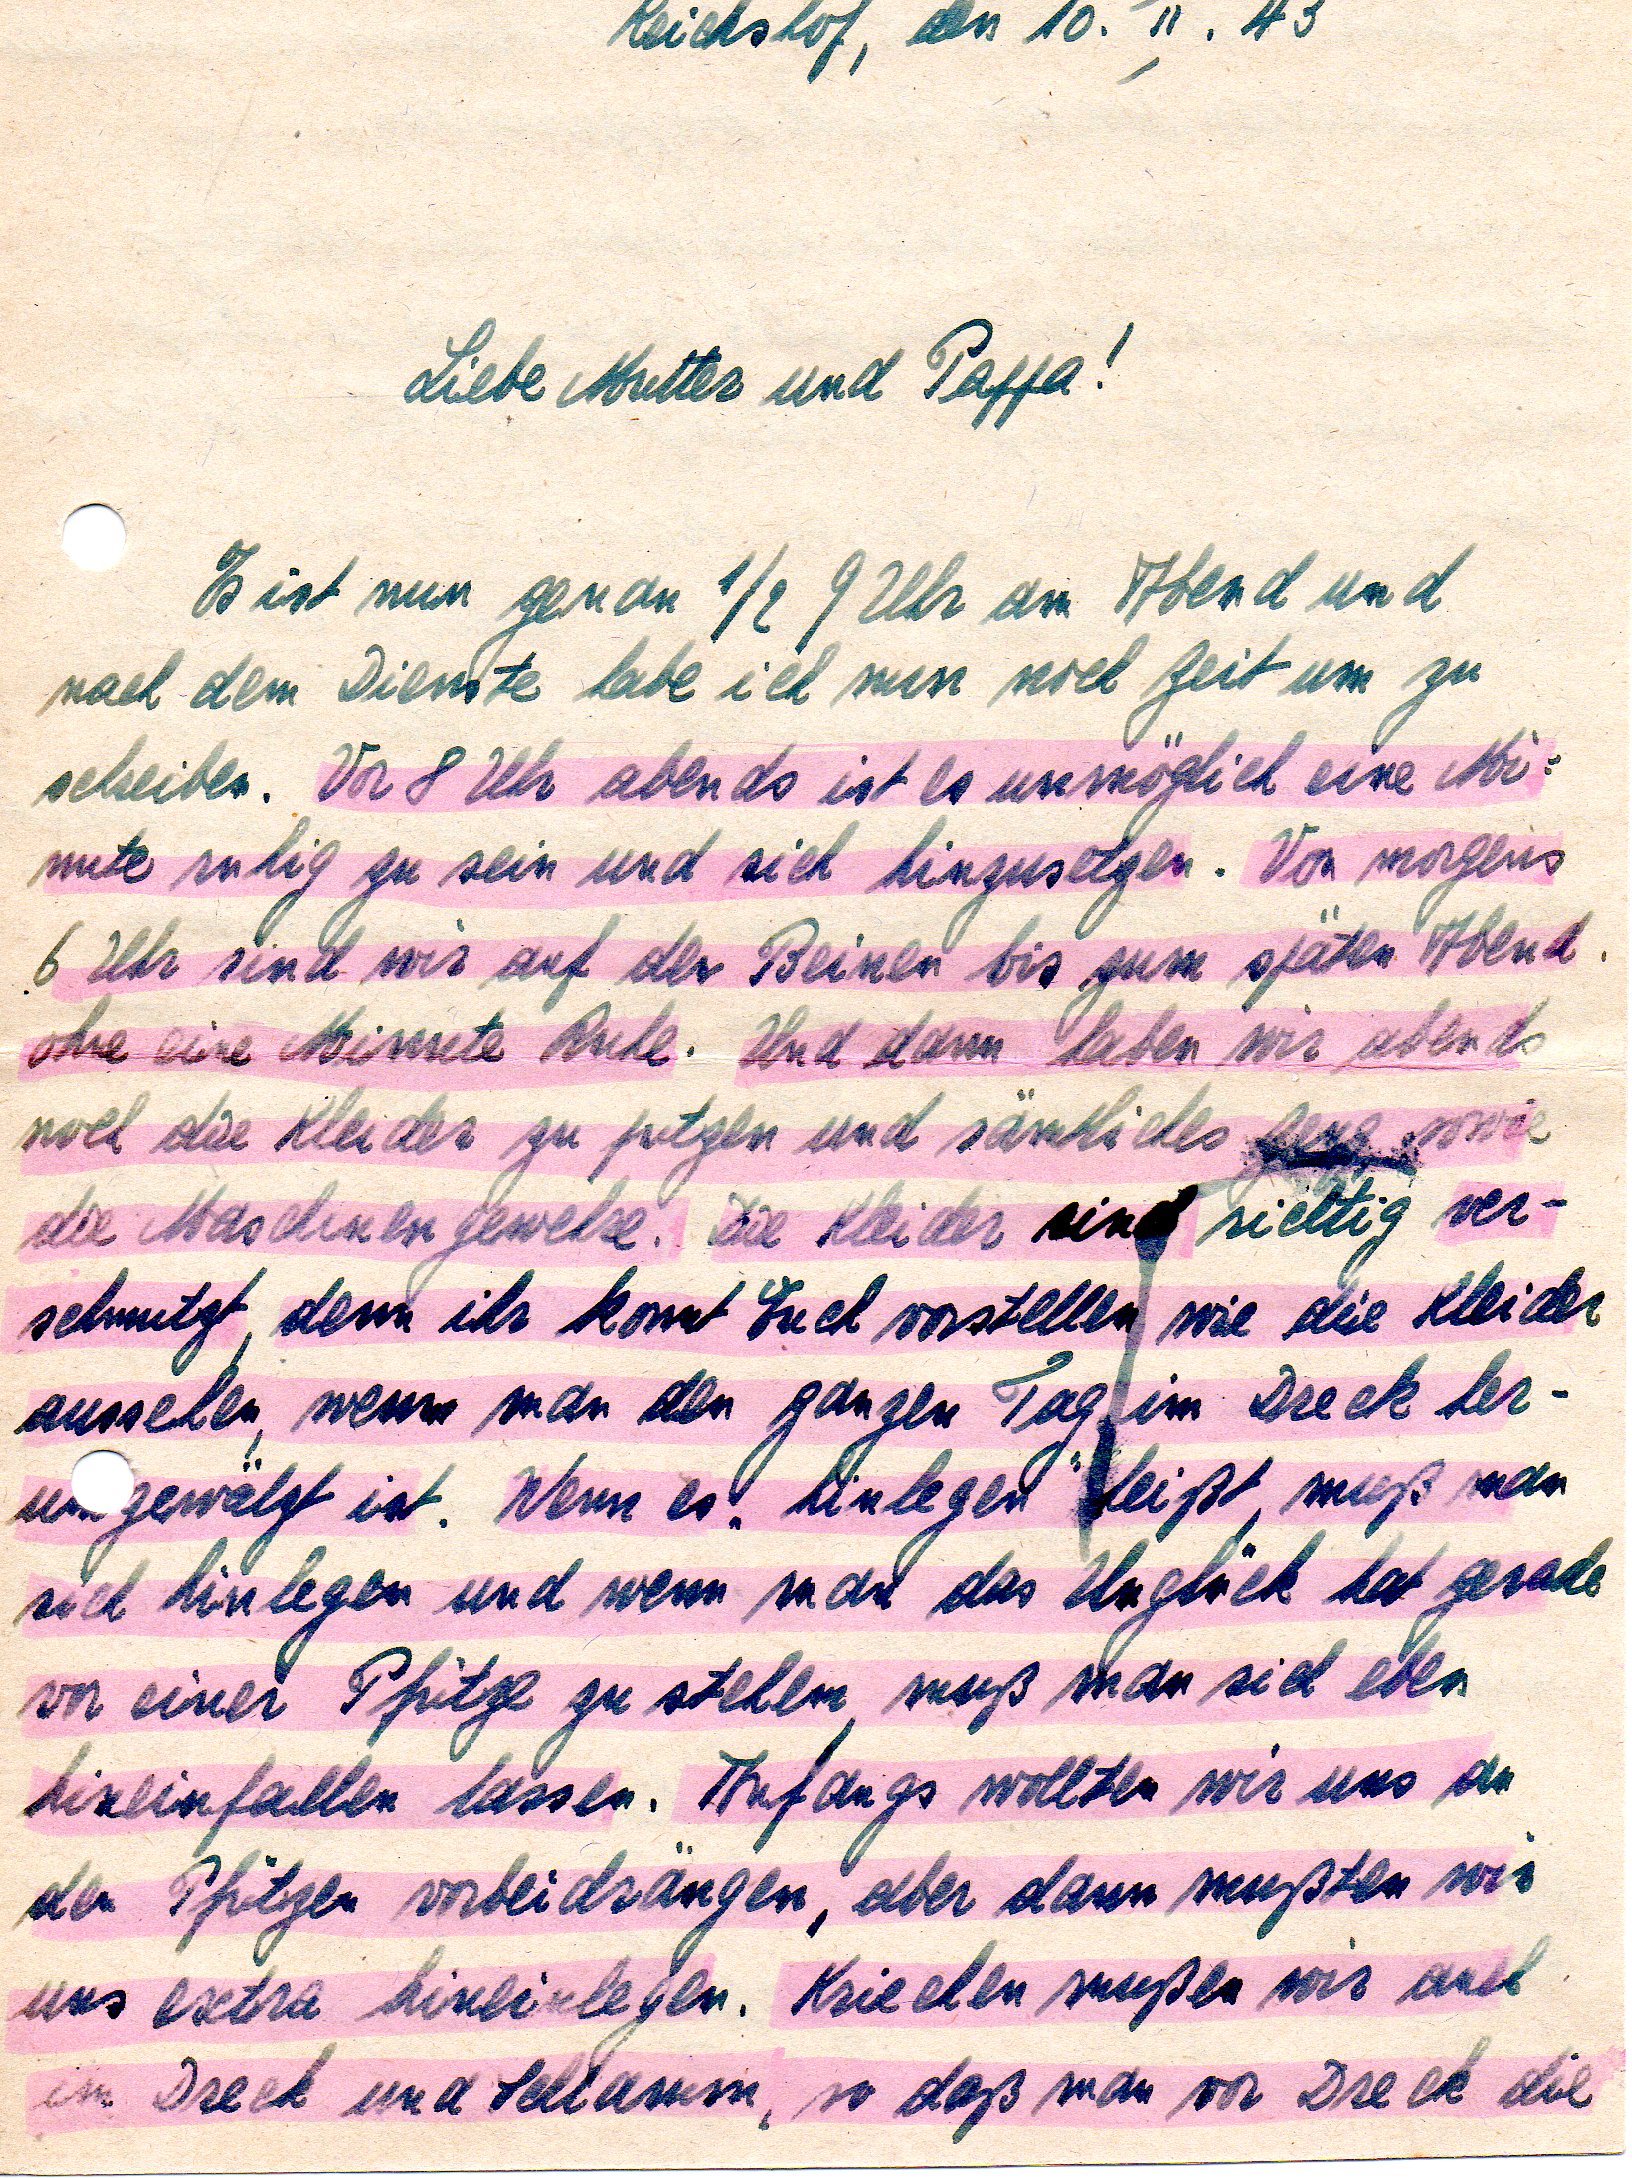 Reichshof, den 10. II. 43
Liebe Mutter und Pappa!
Es ist nun genau 1/2 9 Uhr am Abend und
nach dem Dienste habe ich nun noch Zeit um zu
schreiben. Vor 8 Uhr abends ist es unmöglich eine Mi-
nute ruhig zu sein und sich hinzusetzen. Von morgens
6 Uhr sind wir auf den Beinen bis zum späten Abend.
ohne eine Minute Ruhe. Und dann haben wir abends
noch die Kleider zu putzen und sämtliches Zeug sowie
die Maschinengewehre. Die Kleider sind richtig ver-
schmutzt, denn ihr konnt Euch vorstellen wie die Kleider
aussehen, wenn man den ganzen Tag im Dreck her-
umgewälzt ist. Wenn es „hinlegen" heißt, muß man
sich hinlegen und wenn man das Unglück hat gerade
vor einer Pfütze zu stehen, muß man sich eben
hineinfallen lassen. Anfangs wollten wir uns an
den Pfützen vorbeidrängen, aber dann mußten wir
uns extra hineinlegen. Kriechen mußen wir auch
im Dreck und Schlamm, so daß man vor Dreck die